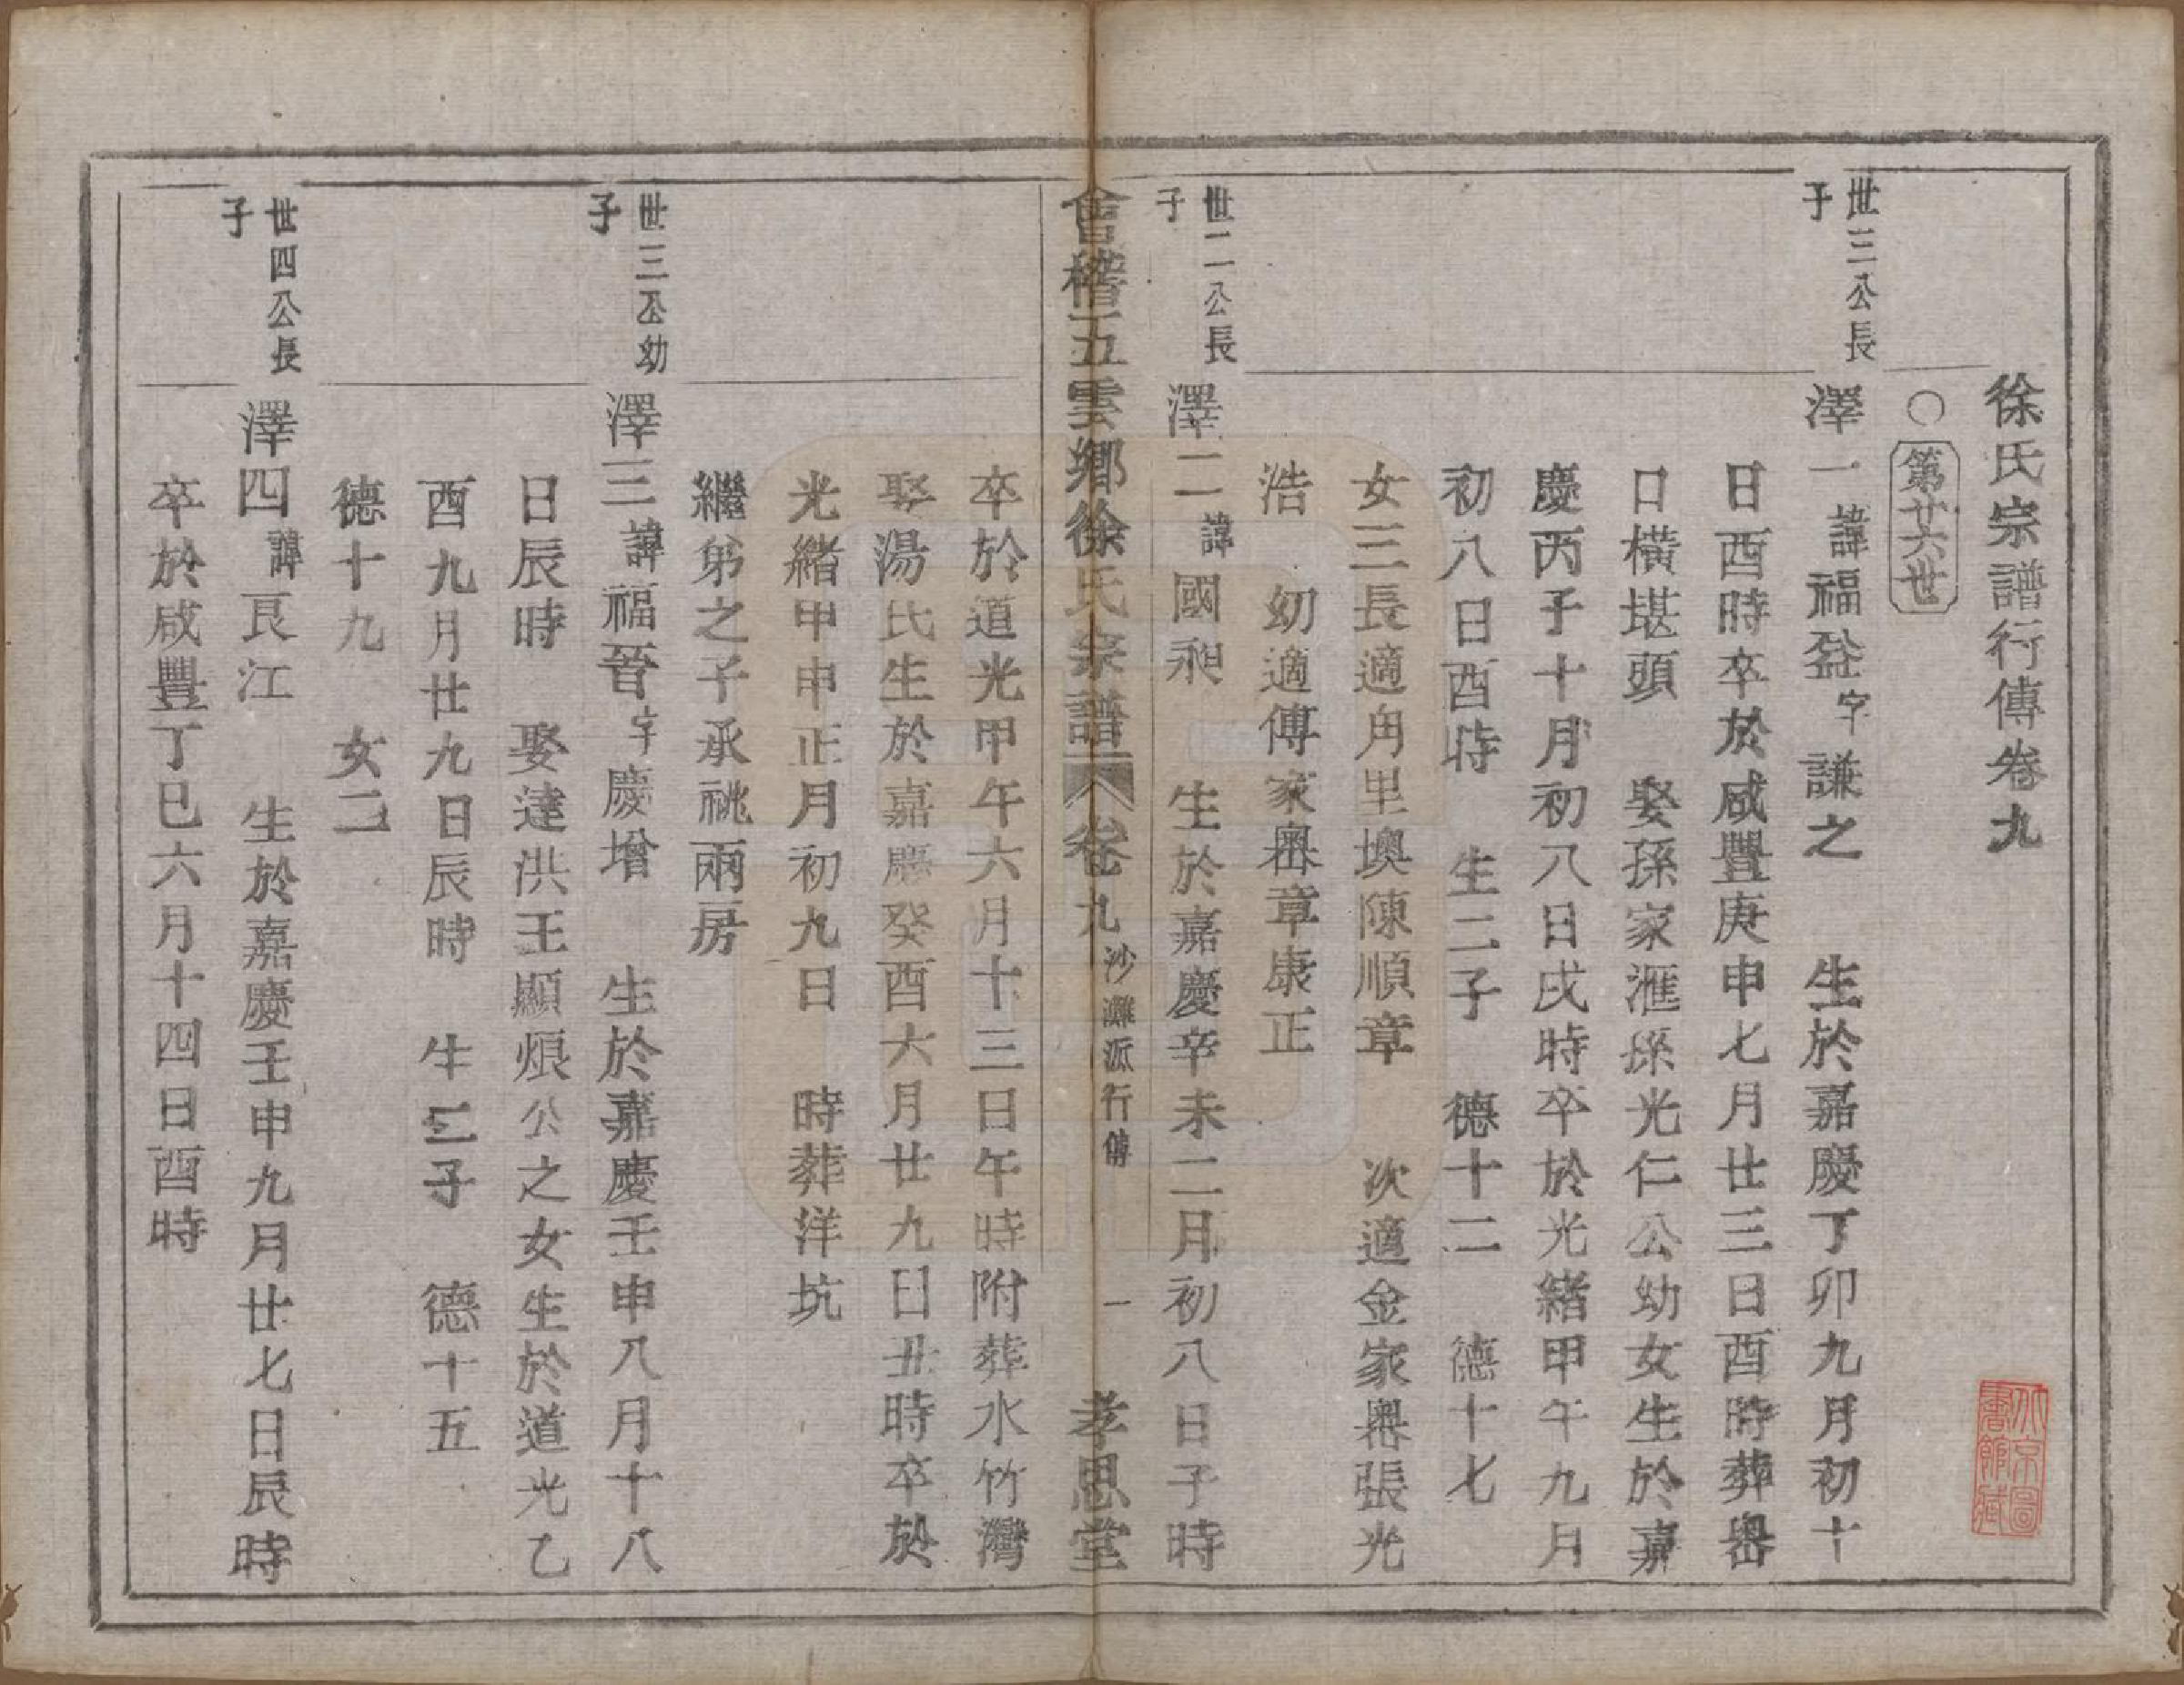 徐氏宗譜行傳卷九
○第廿六世
世三公長
子
澤一諱福𣸣字謙之　生於嘉慶丁卯九月初十
日酉時卒於咸豐庚申七月廿三日酉時葬嶴
口橫堪頭　娶孫家滙孫光仁公幼女生於嘉
慶丙子十月初八日戌時卒於光緒甲午九月
初八日酉時　生二子　德十二　德十七
女三長適甪里墺陳順章　次適金家嶴張光
浩　幼適傅家嶴章康正
世二公長
子
澤二諱國昶　生於嘉慶辛未二月初八日子時
會稽五雲鄉徐氏宗譜　卷九　沙灘派行傳　一　孝思堂
卒於道光甲午六月十三日午時附葬水竹灣
娶湯氏生於嘉慶癸酉六月廿九日丑時卒於
光緒甲申正月初九日　時葬洋坑
繼弟之子承祧兩房
世三公幼
子
澤三諱福晉字慶增　生於嘉慶壬申八月十八
日辰時　娶達洪王顯烺公之女生於道光乙
酉九月廿九日辰時　生三子　德十五
德十九　女二
世四公長
子
澤四諱良江　生於嘉慶壬申九月廿七日辰時
卒於咸豐丁巳六月十四日酉時